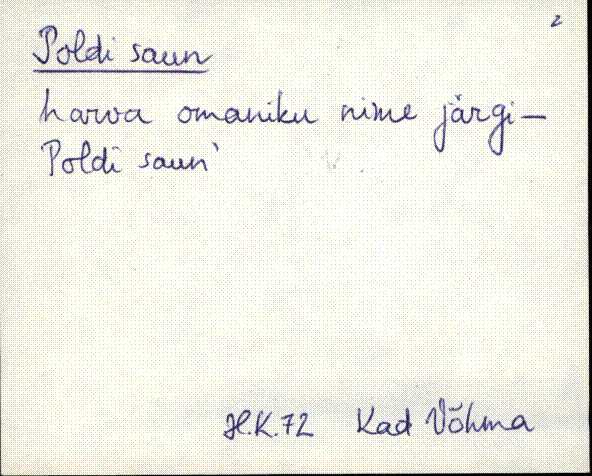 2
Poldi saun
harva omaniku nime järgi –
Poldi saun`
H.K.72 Kad Võhma